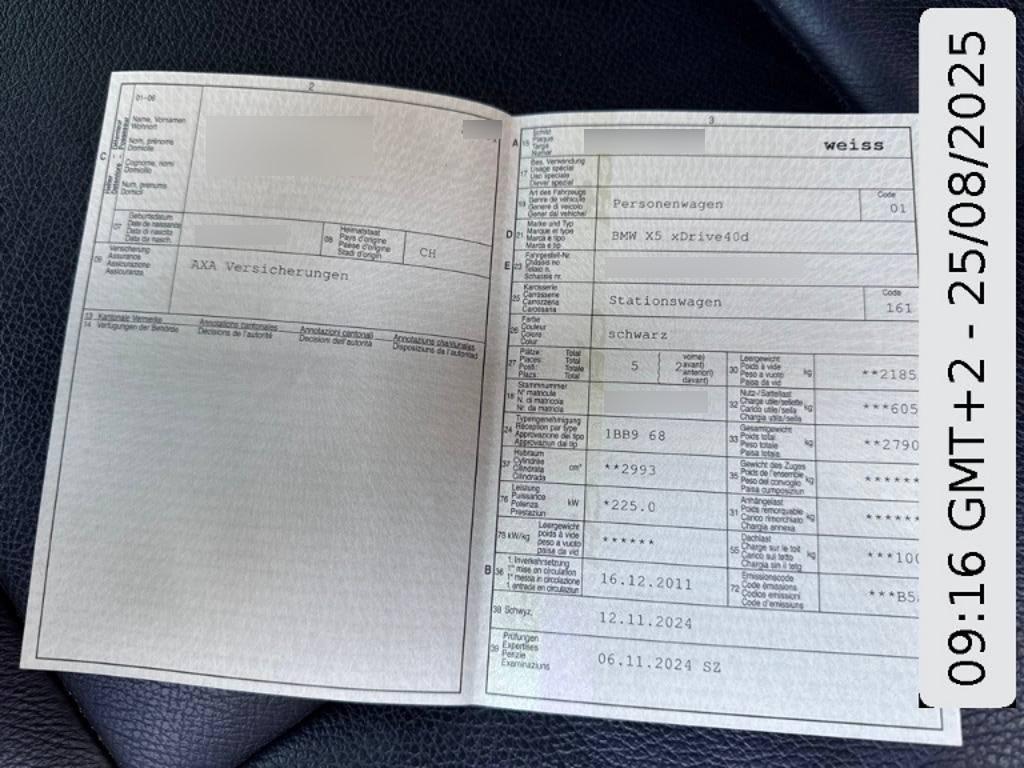 2
01-06
C
Name, Vornamen
Wohnort
Nom, prénoms
Domicile
Cognome, nomi
Domicilio
Num, prenums
Domicil
07
Geburtsdatum
Date de naissance
Data di nascita
Data da nasch.
08
Heimatstaat
Pays d'origine
Paese d'origine
Stadi d'origin
CH
09
Versicherung
Assurance
Assicurazione
Assicuranza
AXA Versicherungen
13 Kantonale Vermerke
14 Verfügungen der Behörde
Annotations cantonales
Décisions de l'autorité
Annotazioni cantonali
Decisioni dell'autorità
Annotaziuns chantunalas
Disposiziuns da l'autoritad
3
A
15
Schild
Plaque
Targa
Numer
weiss
17
Bes. Verwendung
Usage spécial
Uso speciale
Diever spezial
19
Art des Fahrzeugs
Genre de véhicule
Genere di veicolo
Gener dal vehichel
Personenwagen
Code
01
D
21
Marke und Typ
Marque et type
Marca e tipo
Marca e tip
BMW X5 xDrive40d
E
23
Fahrgestell-Nr.
Châssis no
Telaio n.
Schassis nr.
25
Karosserie
Carrosserie
Carrozzeria
Carossaria
Stationswagen
Code
161
26
Farbe
Couleur
Colore
Colur
schwarz
27
Plätze: Total
Places: Total
Posti: Totale
Plazs: Total
5
2
vorne)
avant)
anteriori)
davant)
30
Leergewicht
Poids à vide
Peso a vuoto
Paisa da vid
kg
**2185
18
Stammnummer
N° matricule
N. di matricola
Nr. da matricla
32
Nutz-/Sattellast
Charge utile/sellette
Carico utile/sella
Chargia utila/sella
kg
***605
24
Typengenehmigung
Réception par type
Approvazione del tipo
Approvaziun dal tip
1BB9 68
33
Gesamtgewicht
Poids total
Peso totale
Paisa totala
kg
**2790
37
Hubraum
Cylindrée
Cilindrata
Cilindrada
cm³
**2993
35
Gewicht des Zuges
Poids de l'ensemble
Peso del convoglio
Paisa cumposiziun
kg
******
76
Leistung
Puissance
Potenza
Prestaziun
kW
*225.0
31
Anhängelast
Poids remorquable
Carico rimorchiato
Chargia annexa
kg
******
78 kW/kg
Leergewicht
poids à vide
peso a vuoto
paisa da vid
******
55
Dachlast
Charge sur le toit
Carico sul tetto
Chargia sin il tetg
kg
***100
B
36
1. Inverkehrsetzung
1re mise en circulation
1a messa in circolazione
1. entrada en circulaziun
16.12.2011
72
Emissionscode
Code émissions
Codice emissioni
Code d'emissiuns
***B5
38 Schwyz,
12.11.2024
39
Prüfungen
Expertises
Perizie
Examinaziuns
06.11.2024 SZ
09:16 GMT+2 - 25/08/2025